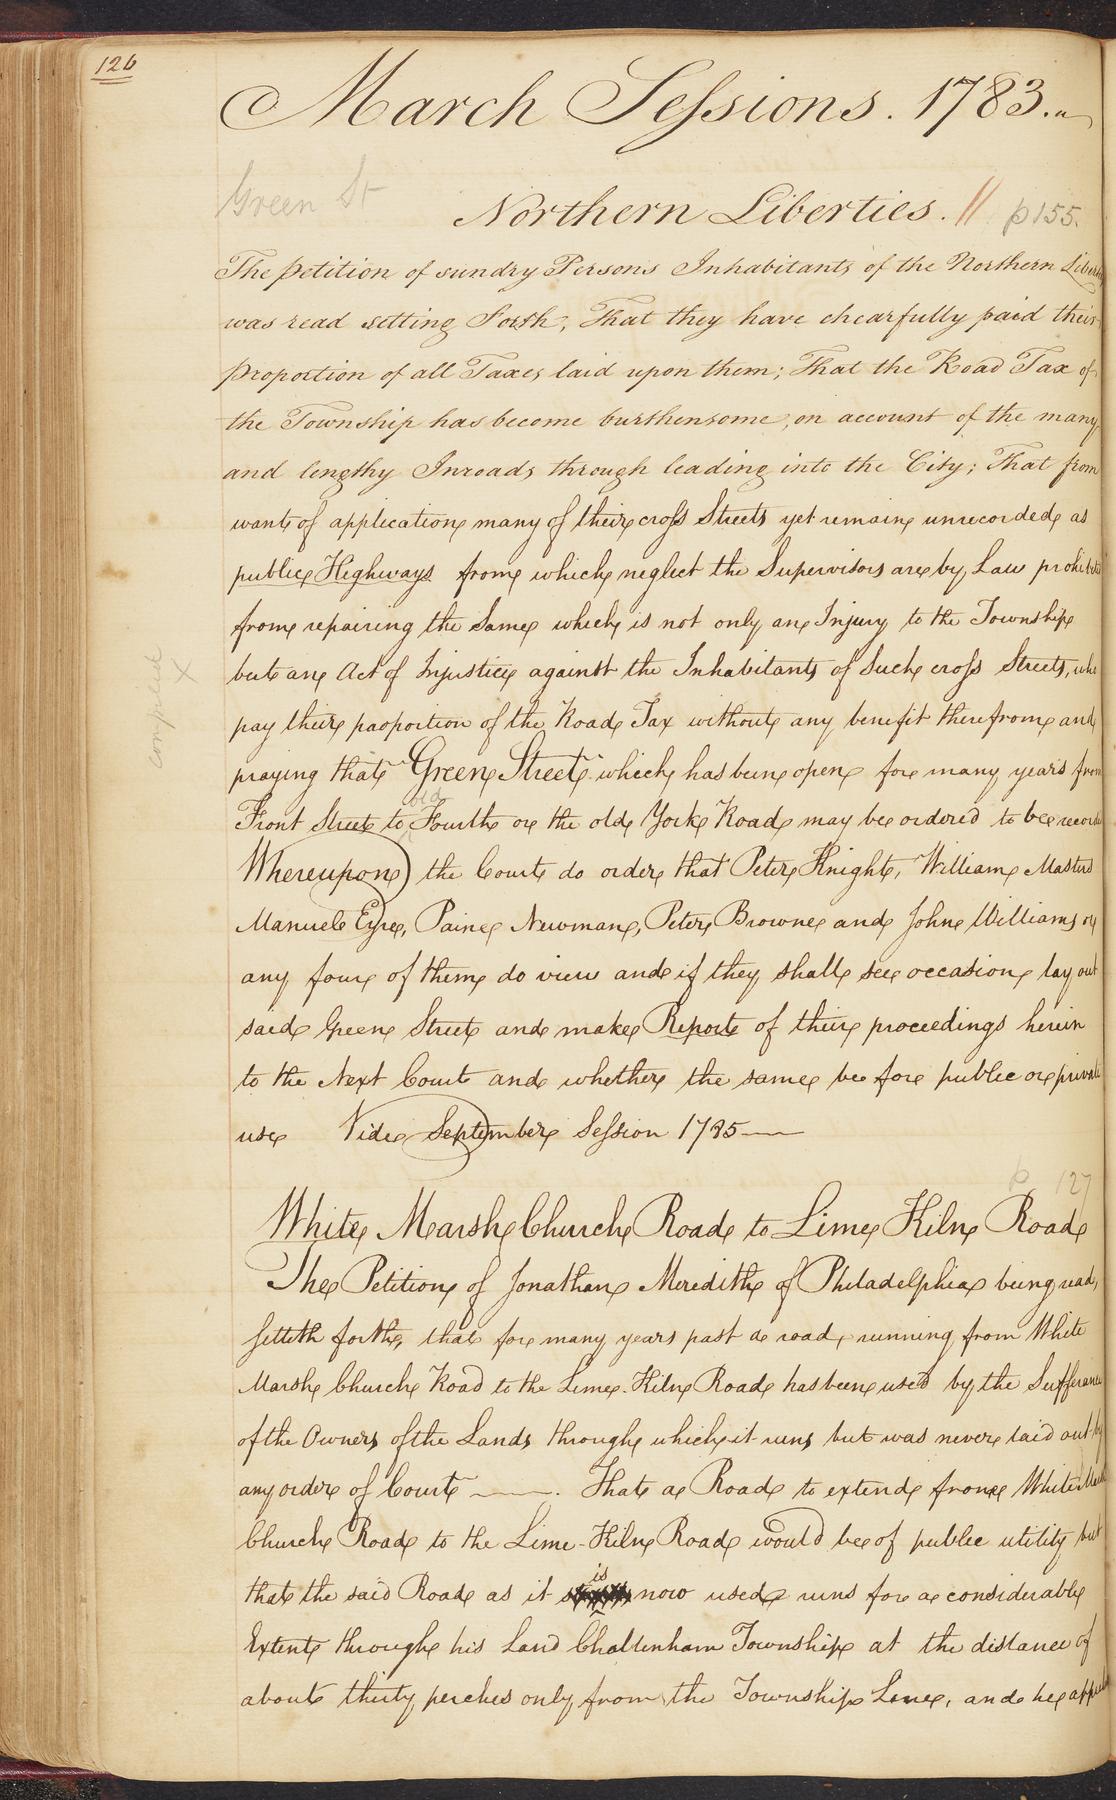 126
March Sessions. 1783.
Green St
Northern Liberties. 11 p155.
The petition of sundry Persons Inhabitants of the Northern Liberties
was read setting Forth, That they have chearfully paid their
proportion of all Taxes laid upon them; That the Road Tax of
the Township has become burthensome, on account of the many
and lengthy Inroads through leading into the City; That from
want of application many of their cross Streets yet remain unrecorded as
public Highways from which neglect the Supervisors are by Law prohibited
from repairing the Same which is not only an Injury to the Township
but an Act of Injustice against the Inhabitants of Such cross Streets, who
compared X
pay their paoportion of the Road Tax without any benefit therefrom and
praying that "Green Street" which has been open for many years from
Front Street to old Fourth or the old York Road may be ordered to be record
Whereupon) the Court do order that Peter Knight, William Masters
Manuel Eyre, Paine Newman, Peter Browne and John Williams or
any four of them do view and if they shall see occasion lay out
said Green Street and make Report of their proceedings herein
to the Next Court and whether the same be for public or private
use Vide September Session 1785
p 127
White Marsh Church Road to Lime Kiln Road
The Petition of Jonathan Meredith of Philadelphia being read,
setteth forth, that for many years past a road, running from White
Marsh Church Road to the Lime-Kiln Road has been used by the Sufferance
of the Owners of the Lands through which it runs but was never laid out by
any order of Court ——. That a Road to extend from White Marsh
Church Road to the Lime-Kiln Road would be of public utility but
that the said Road as it is now used runs for a considerable
Extent through his Land Chaltenham Township at the distance of
about thirty perches only from the Township Line, and he